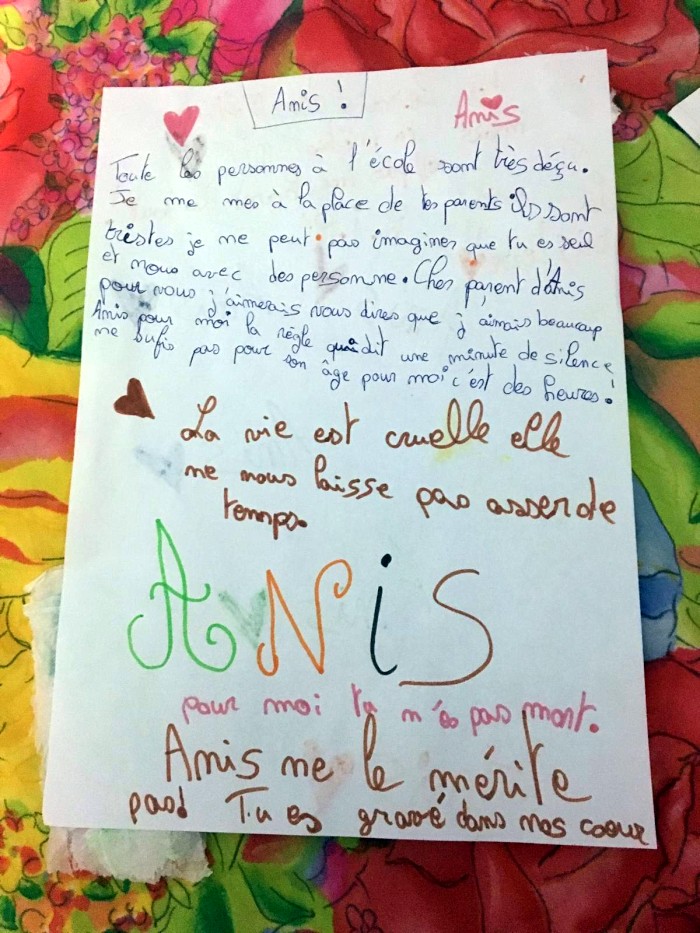 Anis !
Anis
Toute les personnes à l'école sont très déçu.
Je me mes à la place de tes parents ils sont
tristes je me peut pas imaginer que tu es seul
et nous avec des personne. Cher parent d'Anis
pour vous j'aimerais vous dires que j'aimais beaucoup
Anis pour moi la règle qui dit une minute de silence
ne sufis pas pour son âge pour moi c'est des heures !
La vie est cruelle elle
ne nous laisse pas asser de
temps.
ANiS
pour moi tu n'es pas mort.
Anis ne le mérite
pas! Tu es gravé dans nos coeur